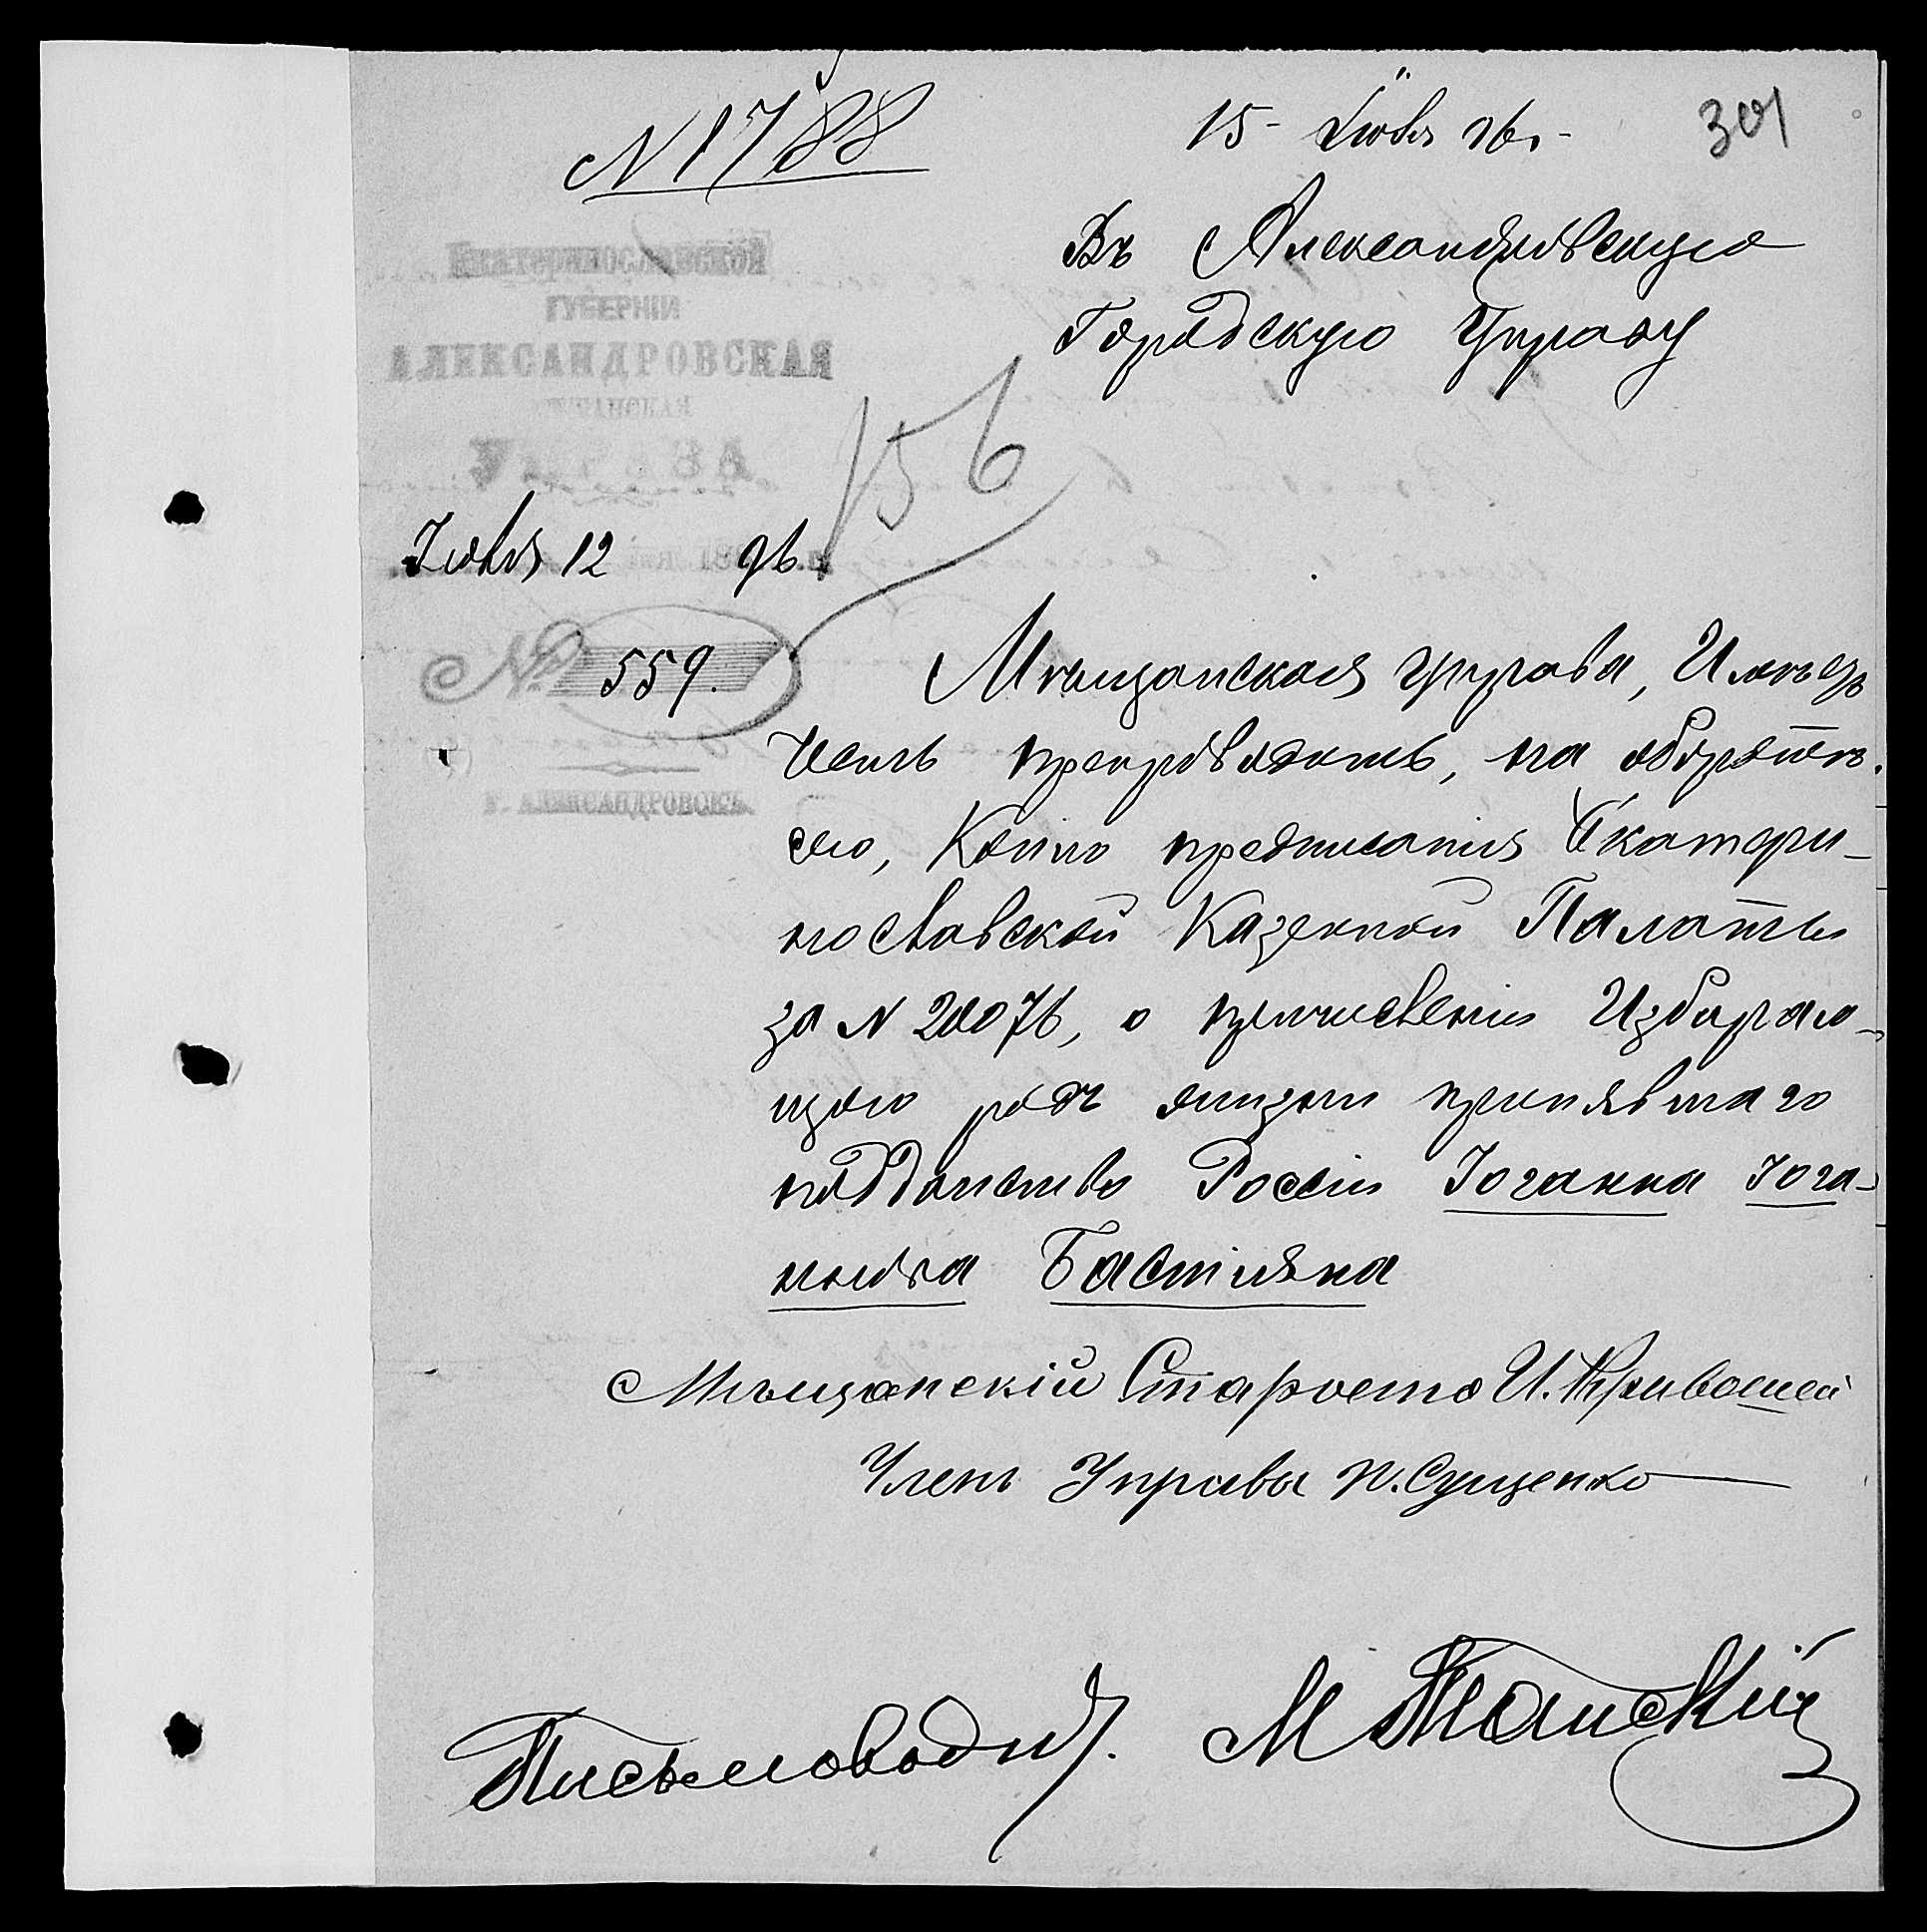 № 1788
15 Іюля 96 г.
301
Въ Александровскую
Городскую Управу
Екатеринославской
ГУБЕРНІИ
АЛЕКСАНДРОВСКАЯ
МѢЩАНСКАЯ
УПРАВА
156
Іюля 12 96 г.
№ 559.
Г. АЛЕКСАНДРОВСКЪ.
Мѣщанская Управа, Имѣетъ
честь препроводить, на оборотѣ
сего, Копію предписанія Екатери-
нославской Казенной Палаты
за № 20076, о причисленіи Избираю-
щаго родъ жизни принявшаго
подданство Россіи Іоганна Іога-
нова Бастіяна
Мѣщанскій Староста И. Кривошей
Членъ Управы П. Сущенко
Письмоводит.